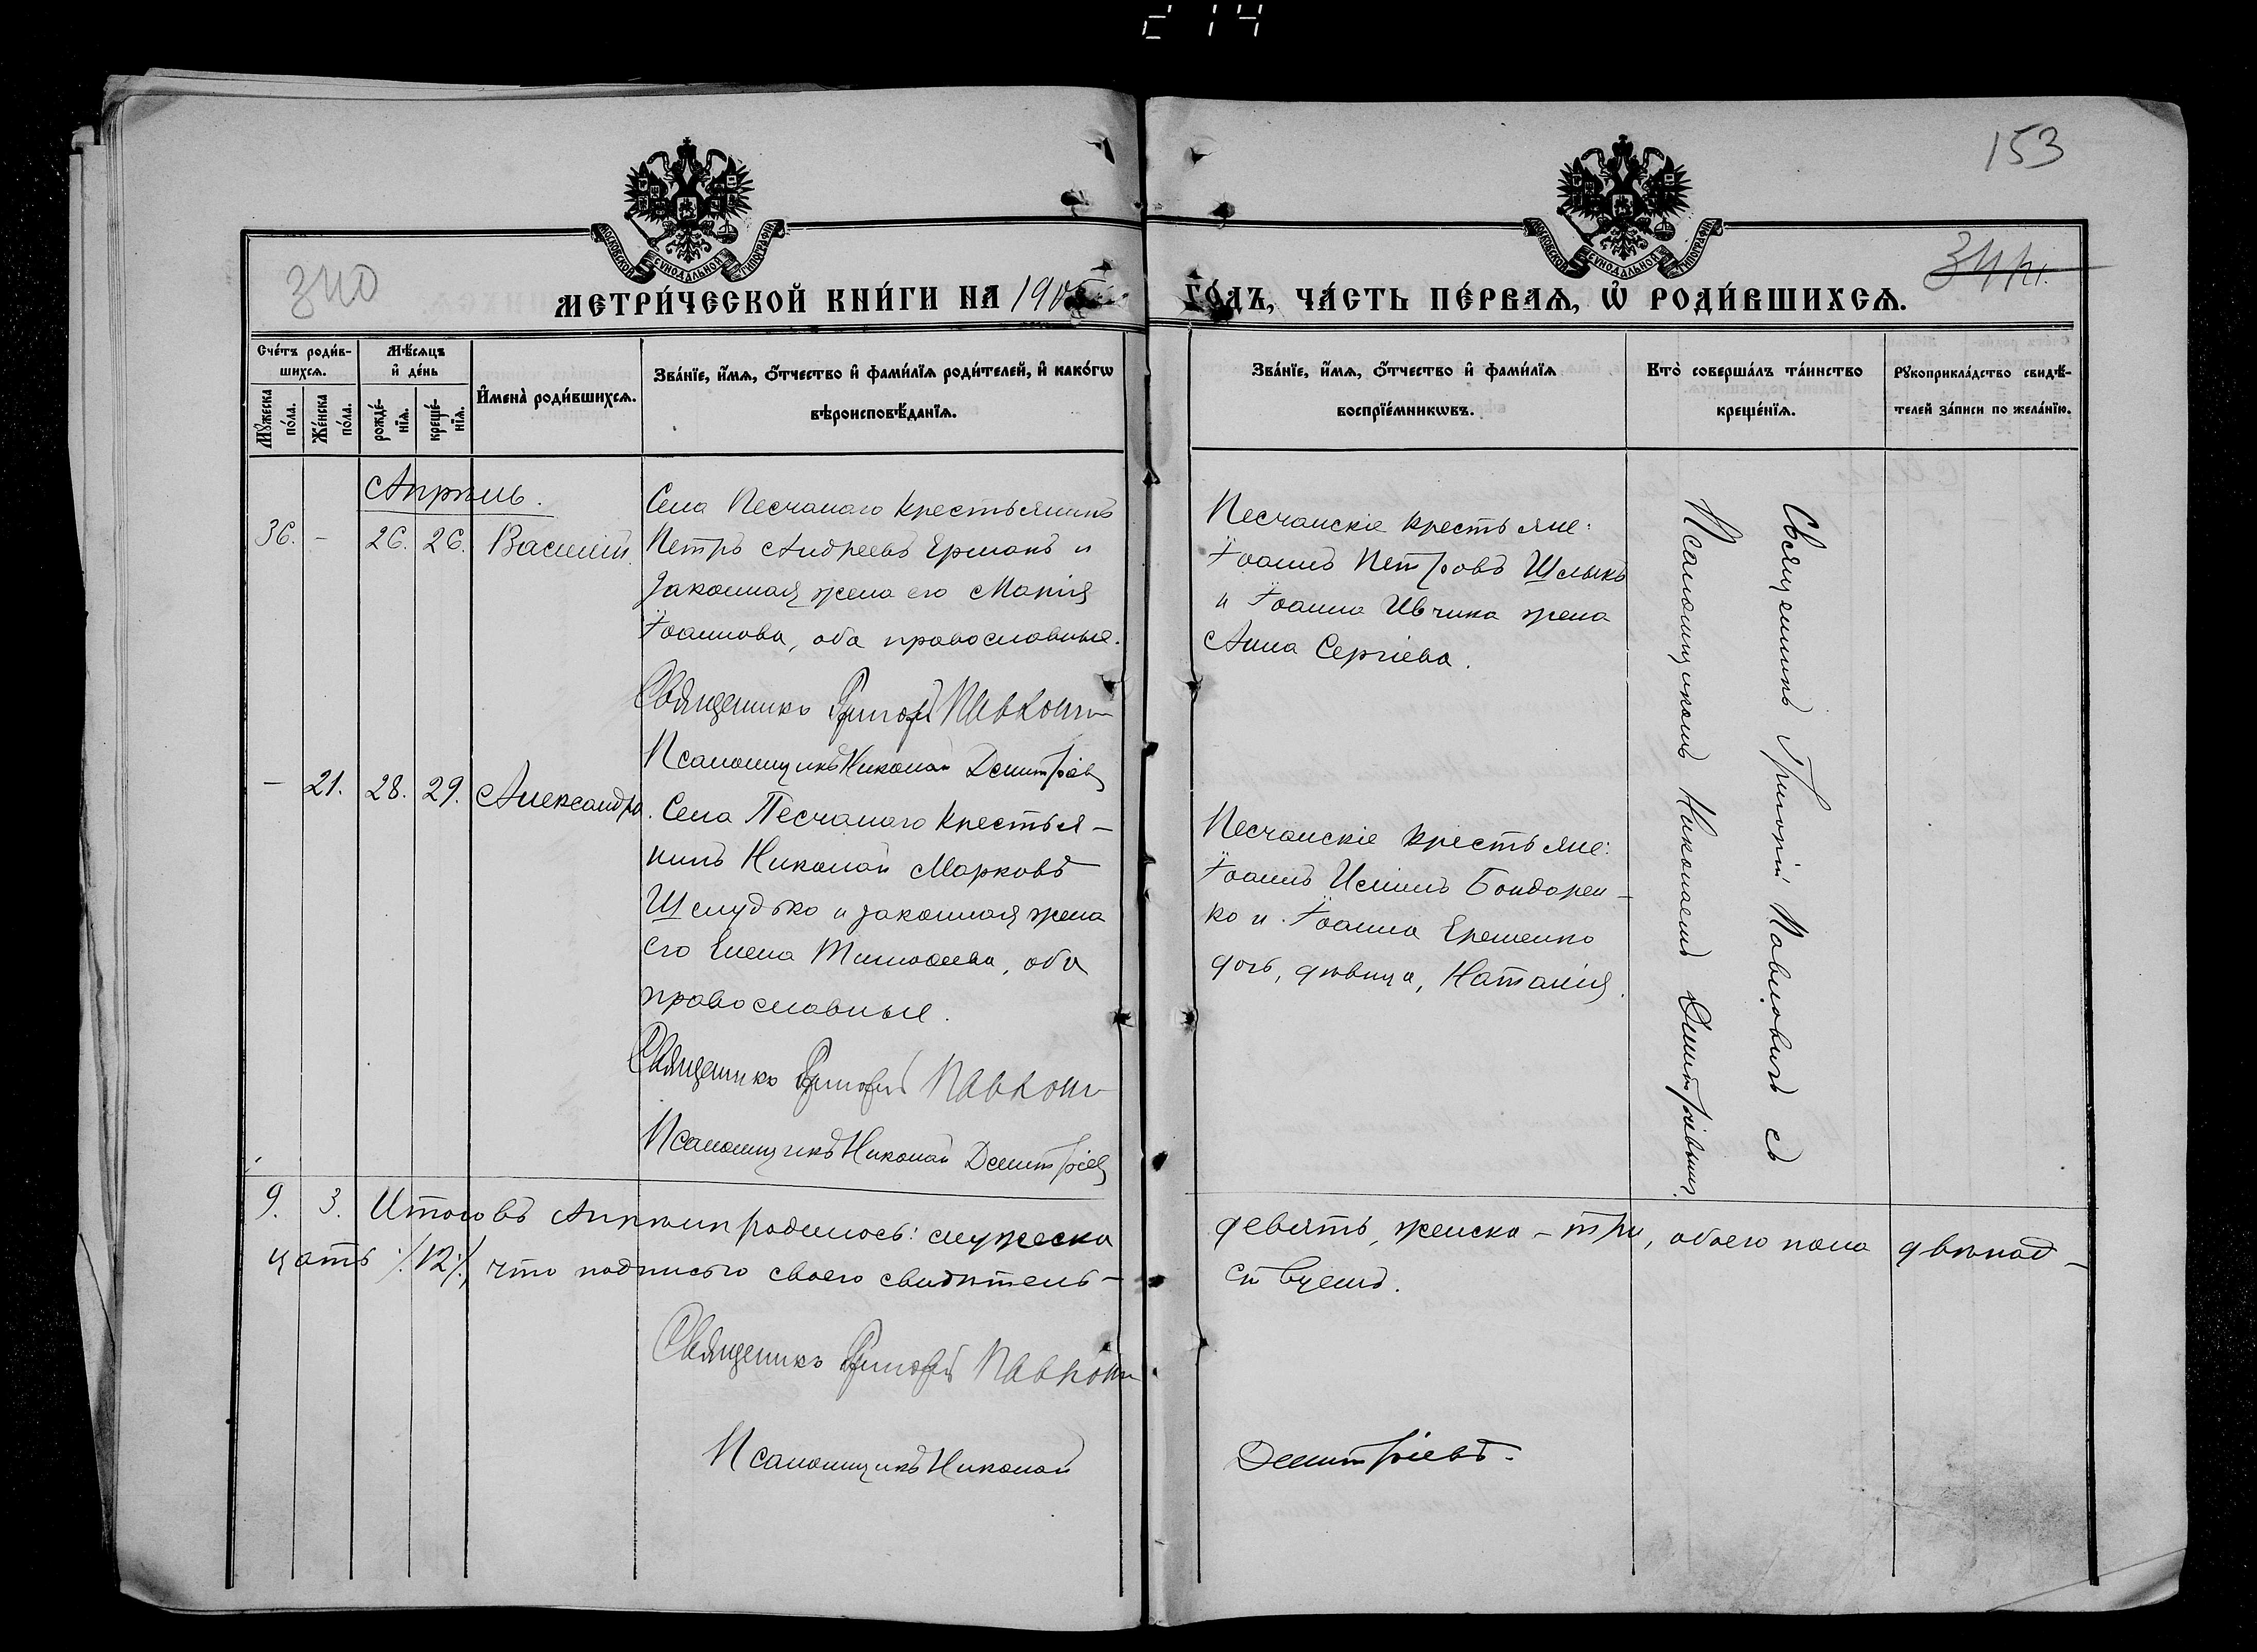 2 14
153
340
341.
МОСКОВСКОЙ СѴНОДАЛЬНОЙ ТИПОГРАФІИ
МОСКОВСКОЙ СѴНОДАЛЬНОЙ ТИПОГРАФІИ
МЕТРИ́ЧЕСКОЙ КНИ́ГИ НА 190
ГО́ДЪ, ЧА́СТЬ ПЕ́РВАѦ, Ѡ҆ РОДИ́ВШИХСѦ.
Сче́тъ роди́в-
шихсѧ.
Мꙋ́жеска по́ла.
Же́нска по́ла.
Мѣ́сѧцъ
и҆ де́нь
рожде́-
нїѧ.
креще́-
нїѧ.
И҆мена̀ роди́вшихсѧ.
Зва́нїе, и҆́мѧ, ѻ҆́тчество и҆ фами́лїѧ роди́телей, и҆ како́гѡ
вѣроисповѣ́данїѧ.
Зва́нїе, и҆́мѧ, ѻ҆́тчество и҆ фами́лїѧ
воспрїе́мникѡвъ.
Кто̀ соверша́лъ та́инство
креще́нїѧ.
Рꙋкоприкла́дство свидѣ́-
телей за́писи по жела́нїю.
Апрѣль.
36. - 26. 26. Василій.
Села Песчанаго крестьянинъ
Петръ Андреевъ Ермакъ и
законная жена его Марія
Іоаннова, оба православные.
Священникъ Григорій Павлович
Псаломщикъ Николай Димитріев
Песчанскіе крестьяне:
Іоаннъ Петровъ Шлыкъ
и Іоанна Ивчика жена
Анна Сергіева.
Священникъ Григорій Павловичъ съ
Псаломщикомъ Николаемъ Димитріевымъ.
- 21. 28. 29. Александра.
Села Песчанаго крестья-
нинъ Николай Марковъ
Шелудько и законная жена
его Елена Тимоѳеева, оба
православные.
Священникъ Григорій Павлович
Псаломщикъ Николай Димитріев
Песчанскіе крестьяне:
Іоаннъ Бондарен-
ко и Іоанна Еременко
дочь, дѣвица, Наталія.
9. 3. Итого въ Апрѣлѣ родилось: мужеска
девять, женска - три, обоего пола двѣнад-
цать /:12:/, что подписью своею свидѣтель-
ствуемъ.
Священникъ Григорій Павлович
Псаломщикъ Николай
Димитріевъ.